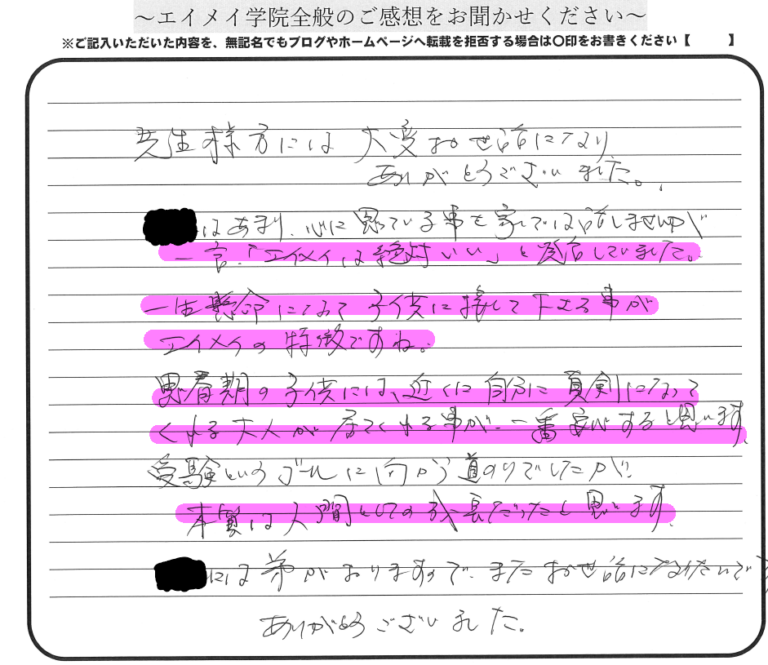 ～エイメイ学院全般のご感想をお聞かせください～
※ご記入いただいた内容を、無記名でもブログやホームページへ転載を拒否する場合は〇印をお書きください【　　】
先生様方には 大変お世話になり
ありがとうございました。
はあまり、心に思っている事を家では話しませんが
一言、「エイメイは絶対いい」と発言していました。
一生懸命になって子供に接して下さる事が
エイメイの特徴ですね。
思春期の子供には、近くに自分に真剣になって
くれる大人が居てくれる事が、一番安心すると思います
受験というゴールに向かう道のりでしたが、
本質は人間としての成長だったと思います。
には弟がおりますので、またお世話になりたいです
ありがとうございました。